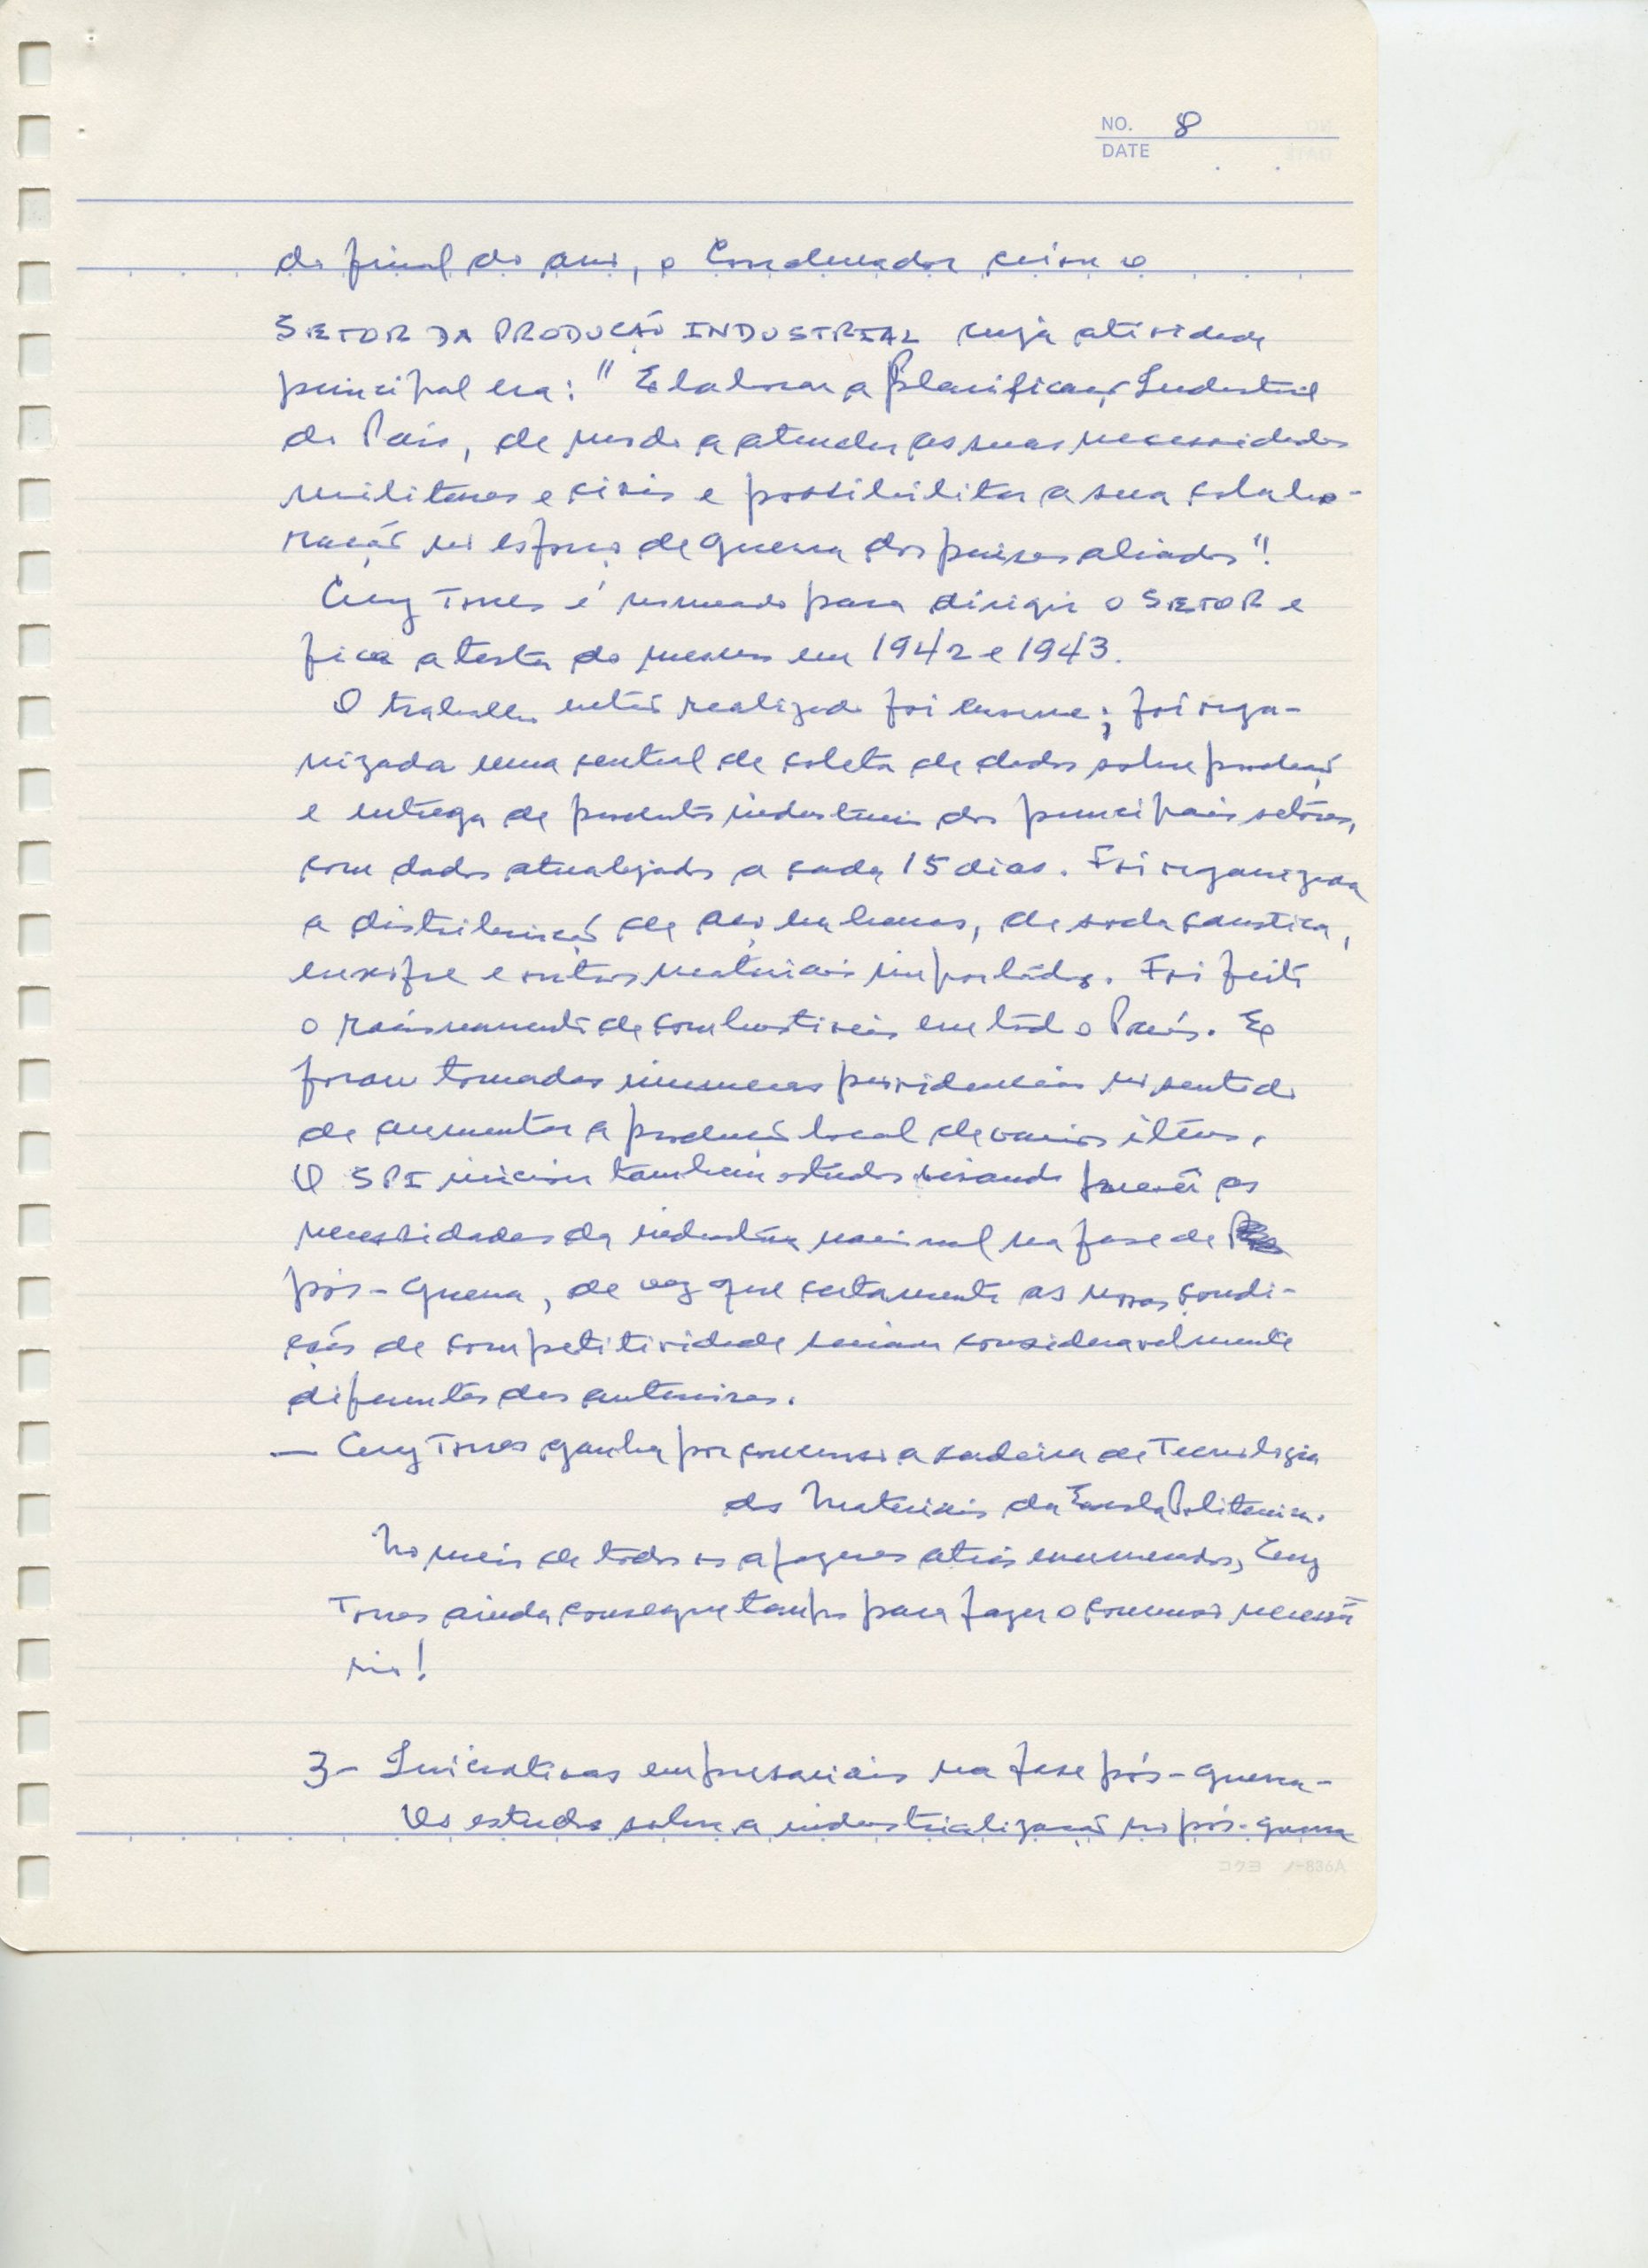 NO. 8
DATE
do final do ano, o Coordenador criou o
SETOR DA PRODUÇÃO INDUSTRIAL cuja atividade
principal era: "Elaborar a Planificação Industrial
do País, de modo a atender as suas necessidades
militares e civis e possibilitar a sua colabo-
ração no esforço de guerra dos países aliados"!
Cuy Torres é nomeado para dirigir o SETOR e
fica a testa do mesmo em 1942 e 1943.
O trabalho então realizado foi enorme; foi orga-
nizada uma central de coleta de dados sobre produção
e entrega de produtos industriais dos principais setores,
com dados atualizados a cada 15 dias. Foi organizada
a distribuição de aço em barras, de soda caustica,
enxofre e outros materiais importados. Foi feito
o racionamento de combustíveis em todo o País. E
foram tomadas inumeras providencias no sentido
de aumentar a produção local de varios itens.
O SPI iniciou tambem estudos visando prever as
necessidades da industria nacional na fase de
pós-guerra, de vez que certamente as novas condi-
ções de competitividade seriam consideravelmente
diferentes das anteriores.
— Cuy Torres ganha por concurso a cadeira de Tecnologia
dos Materiais da Escola Politecnica.
No meio de todos os afazeres atrás enumerados, Cuy
Torres ainda consegue tempo para fazer o concurso necessá
rio!
3- Iniciativas empresariais na fase pós-guerra-
Os estudos sobre a industrialização no pós-guerra
コクヨ ノ-836A